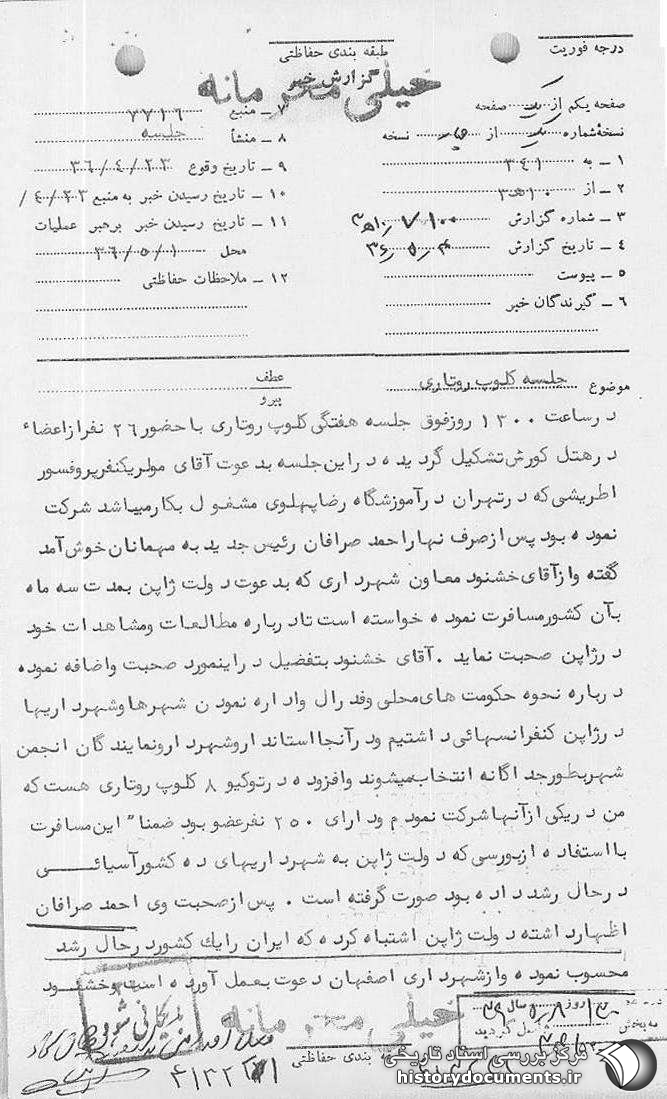 درجه فوریت
طبقه بندی حفاظتی
گزارش خبر
خیلی محرمانه
صفحه یکم از یک صفحه
نسخه شماره یک از چهار نسخه
۱ ـ به ۳۴۱
۲ ـ از ۱۰ه۳
۳ ـ شماره گزارش
۴ ـ تاریخ گزارش
۵ ـ پیوست
۶ ـ گیرندگان خبر
۷ ـ منبع ۷۷۱۶
۸ ـ منشأ جلسه
۹ ـ تاریخ وقوع ۳۶/۴/۲۳
۱۰ ـ تاریخ رسیدن خبر به منبع ۴/۲۳/
۱۱ ـ تاریخ رسیدن خبر برهبر عملیات
محل ۳۶/۵/۱
۱۲ ـ ملاحظات حفاظتی
موضوع جلسه کلوپ روتاری
عطف
پیرو
درساعت ۱۳۰۰ روزفوق جلسه هفتگی کلوپ روتاری باحضور۲۶ نفرازاعضاء
درهتل کورش تشکیل گردیده دراین جلسه بدعوت آقای مولریکنفرپروفسور
اطریشی که درتهران درآموزشگاه رضاپهلوی مشغول بکارمیباشد شرکت
نموده بود پس ازصرف نهاراحمد صرافان رئیس جدید به مهمانان خوش آمد
گفته وازآقای خشنود معاون شهرداری که بدعوت دولت ژاپن بمدت سه ماه
بآن کشورمسافرت نموده خواسته است تادرباره مطالعات ومشاهدات خود
درژاپن صحبت نماید .آقای خشنود بتفضیل دراینمورد صحبت واضافه نموده
درباره نحوه حکومت های محلی وفدرال واداره نمودن شهرهاوشهرداریها
درژاپن کنفرانسهائی داشتیم ودرآنجااستاندارو شهرداروونمایندگان انجمن
شهربطورجداگانه انتخاب میشوند وافزوده درتوکیو ۸ کلوپ روتاری هست که
من دریکی ازآنهاشرکت نمودم ودارای ۲۵۰ نفرعضو بود ضمنا" این مسافرت
بااستفاده ازبورسی که دولت ژاپن به شهرداریهای ده کشورآسیائی
درحال رشد داده بود صورت گرفته است . پس ازصحبت وی احمد صرافان
اظهارداشته دولت ژاپن اشتباه کرده که ایران رایك کشوردرحال رشد
محسوب نموده وازشهرداری اصفهان دعوت بعمل آورده است وخشنود
خیلی محرمانه
طبقه بندی حفاظتی
بایگانی شود
مرکز بررسی اسناد تاریخی
historydocuments.ir